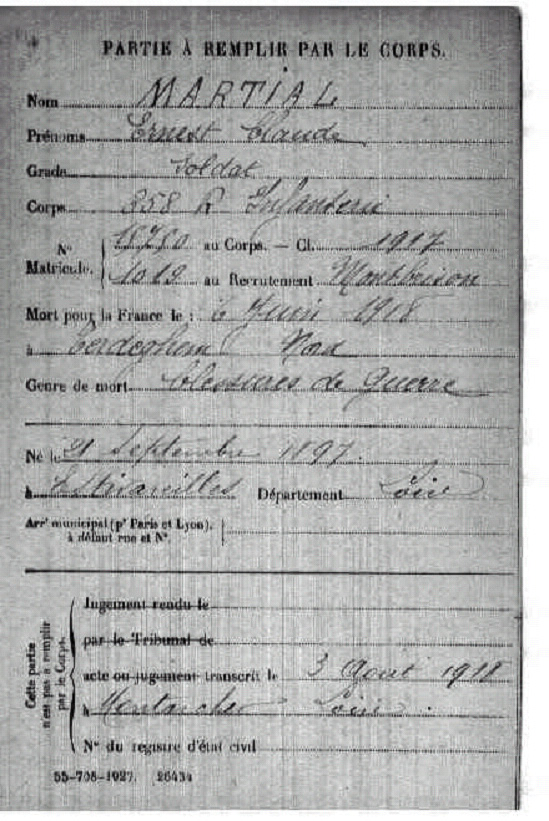 PARTIE À REMPLIR PAR LE CORPS.
Nom MARTIAL
Prénoms Ernest Claude
Grade Soldat
Corps 358 R Infanterie
N° Matricule. au Corps. — Cl. 1917
1019 au Recrutement Montbrison
Mort pour la France le : 6 Juin 1918
à Nord
Genre de mort blessures de Guerre
Né le 21 Septembre 1897
à Estivareilles Département Loire
Arrt municipal (pr Paris et Lyon),
à défaut rue et N°.
Cette partie n'est pas à remplir par le Corps.
Jugement rendu le
par le Tribunal de
acte ou jugement transcrit le 3 Août 1918
à Montarcher Loire.
N° du registre d'état civil
55-708-1927. 26434